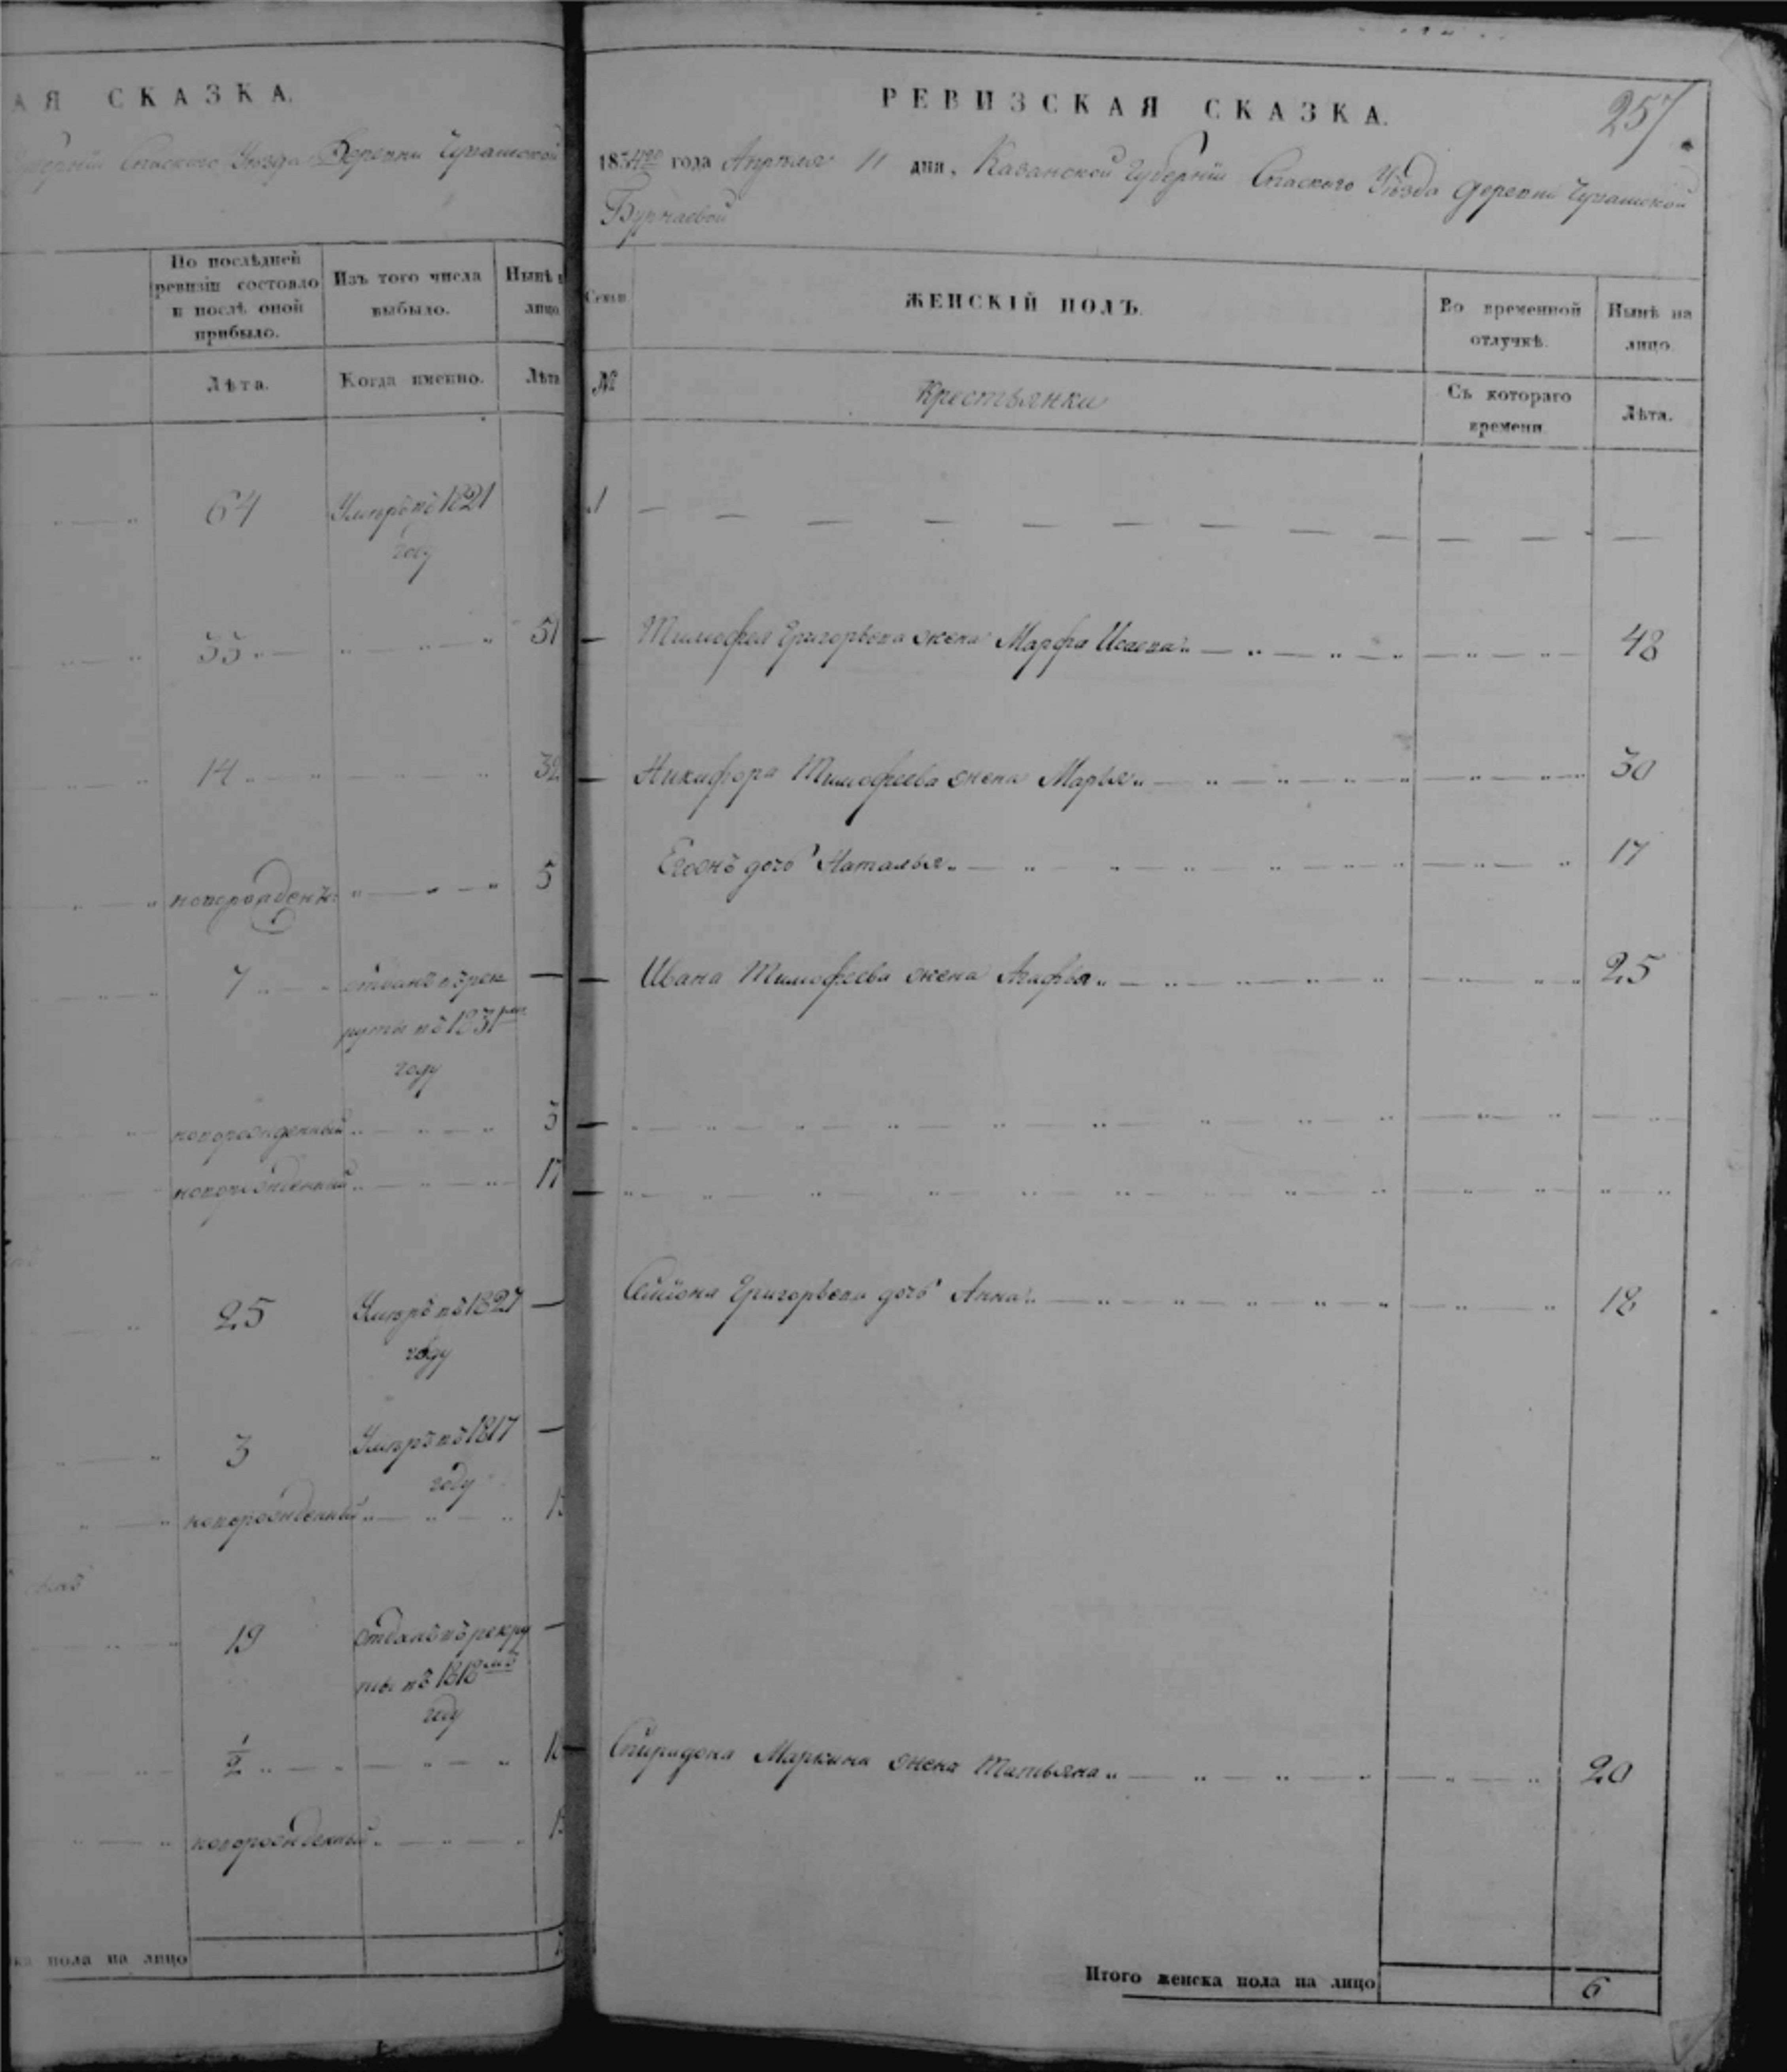 АЯ СКАЗКА.
Губерніи Спаскаго Уѣзда Деревни Чувашской
По послѣдней ревизіи состояло и послѣ оной прибыло.
Изъ того числа выбыло.
Нынѣ
лицо
Лѣта.
Когда именно.
Лѣта
64
Умеръ въ 1821
году
33
51
14
32
новорожденъ
5
7
отданъ въ рек
руты въ 1831мъ
году
новорожденный
3
новорожденный
17
25
Умеръ въ 1827
году
3
Умеръ въ 1817
году
новорожденный
19
отданъ въ рекру
ты въ 1818мъ
году
1/2
новорожденный
пола на лицо
РЕВИЗСКАЯ СКАЗКА.
257
1834го года Апрѣля 11 дня, Казанской Губерніи Спаскаго Уѣзда деревни Чувашской
Бурнаевой
Семьи
ЖЕНСКІЙ ПОЛЪ.
Во временной отлучкѣ.
Нынѣ на лицо.
№
Крестьянки
Съ котораго времени
Лѣта.
1
Тимофея Григорьева жена Марфа Исаева 48
Никифора Тимофеева жена Марья 30
Егоенъ дочь Наталья 17
Ивана Тимофеева жена Агафья 25
Семіона Григорьева дочь Анна 18
Спиридона Маркина жена Татьяна 20
Итого женска пола на лицо
6